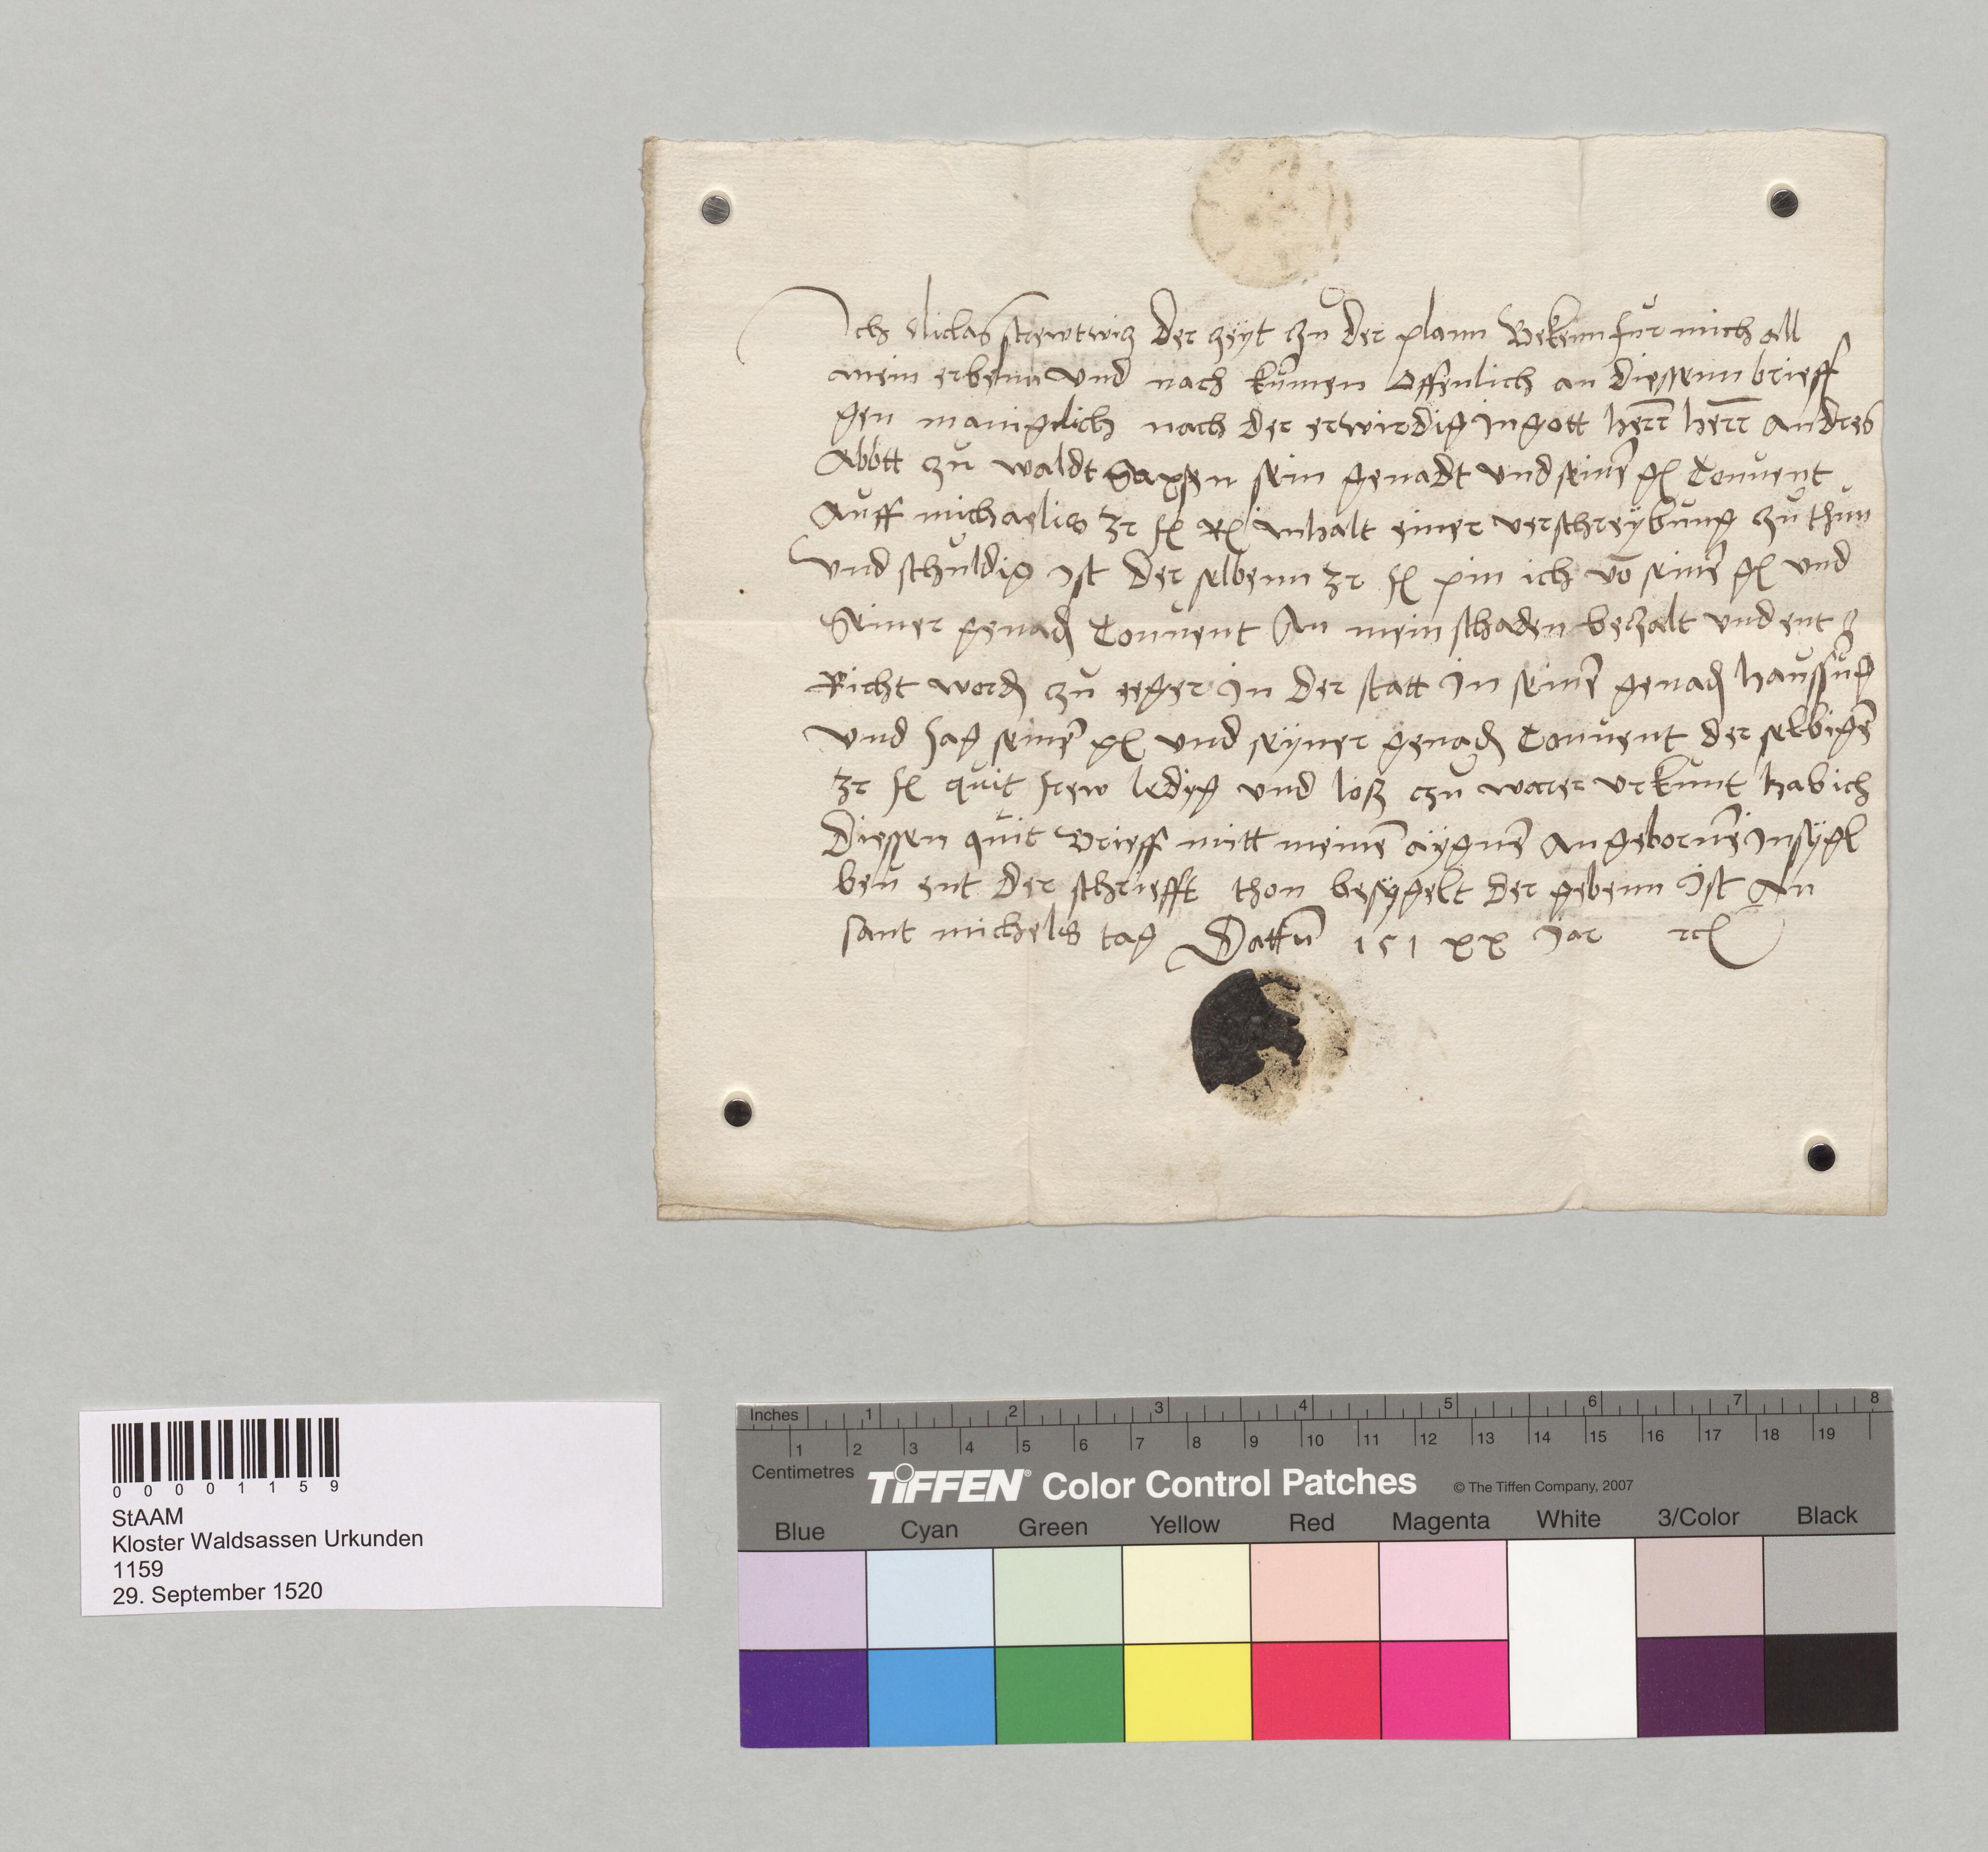 Ich Niclas strewtwiz der zeyt zu der plann Bekenn fur mich all
mein erbenn und nach kumen offenlich an diessenn brieff
gen manigelich nach der erwirdig in gott herr herr Andres
Abbt zu waldt Saxsen sein genadt und seine g Convent
Auff michaelis 32 fl inhalt einer verschreybung zu thun
und schuldig ist der selbenn 32 fl pin ich vo seine g und
Seiner genad Convent An mein schaden bezalt und ent
Richt word zu eeger in der statt in seine genad haussung
und sag seine g und seyner genad Convent der selbige
32 fl quit frew ledig und losz zu warer urkunt hab ich
Diessen quit Brieff mitt meine aygne angeborne insygl
ben ent der schriefft thon besygelt der gebenn ist An
sant michels tag Dattu 151 xx Jar
0 0 0 0 1 1 5 9
StAAM
Kloster Waldsassen Urkunden
1159
29. September 1520
Inches 1 2 3 4 5 6 7 8
1 2 3 4 5 6 7 8 9 10 11 12 13 14 15 16 17 18 19
Centimetres
TIFFEN® Color Control Patches © The Tiffen Company, 2007
Blue Cyan Green Yellow Red Magenta White 3/Color Black